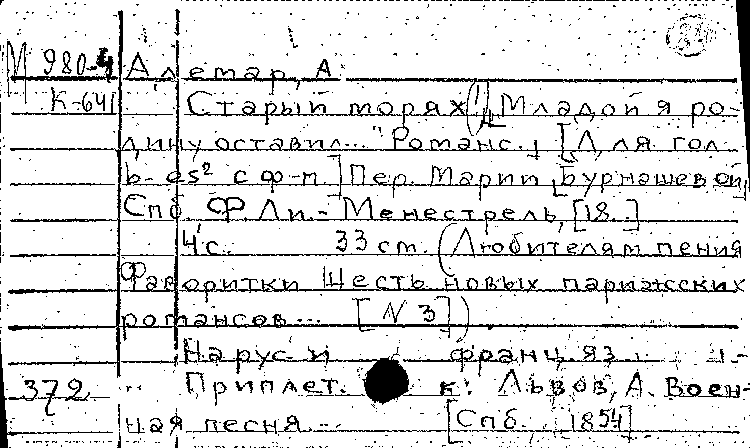 М 980-4 Алетар, А.
К-641 Старый морях (!) „Младой я ро-
дину оставил..." Романс. [Для гол.
b-es² с ф-п.] Пер. Марии Бурнашевой
Спб. Ф. Ли.- Менестрель, [18..]
4 с. 33 см. (Любителям пения
Фаворитки Шесть новых парижских
романсов... [N 3]).
На рус. и франц. яз.
372 Приплет. к: Львов, А. Воен-
ная песня... [Спб. 1854]